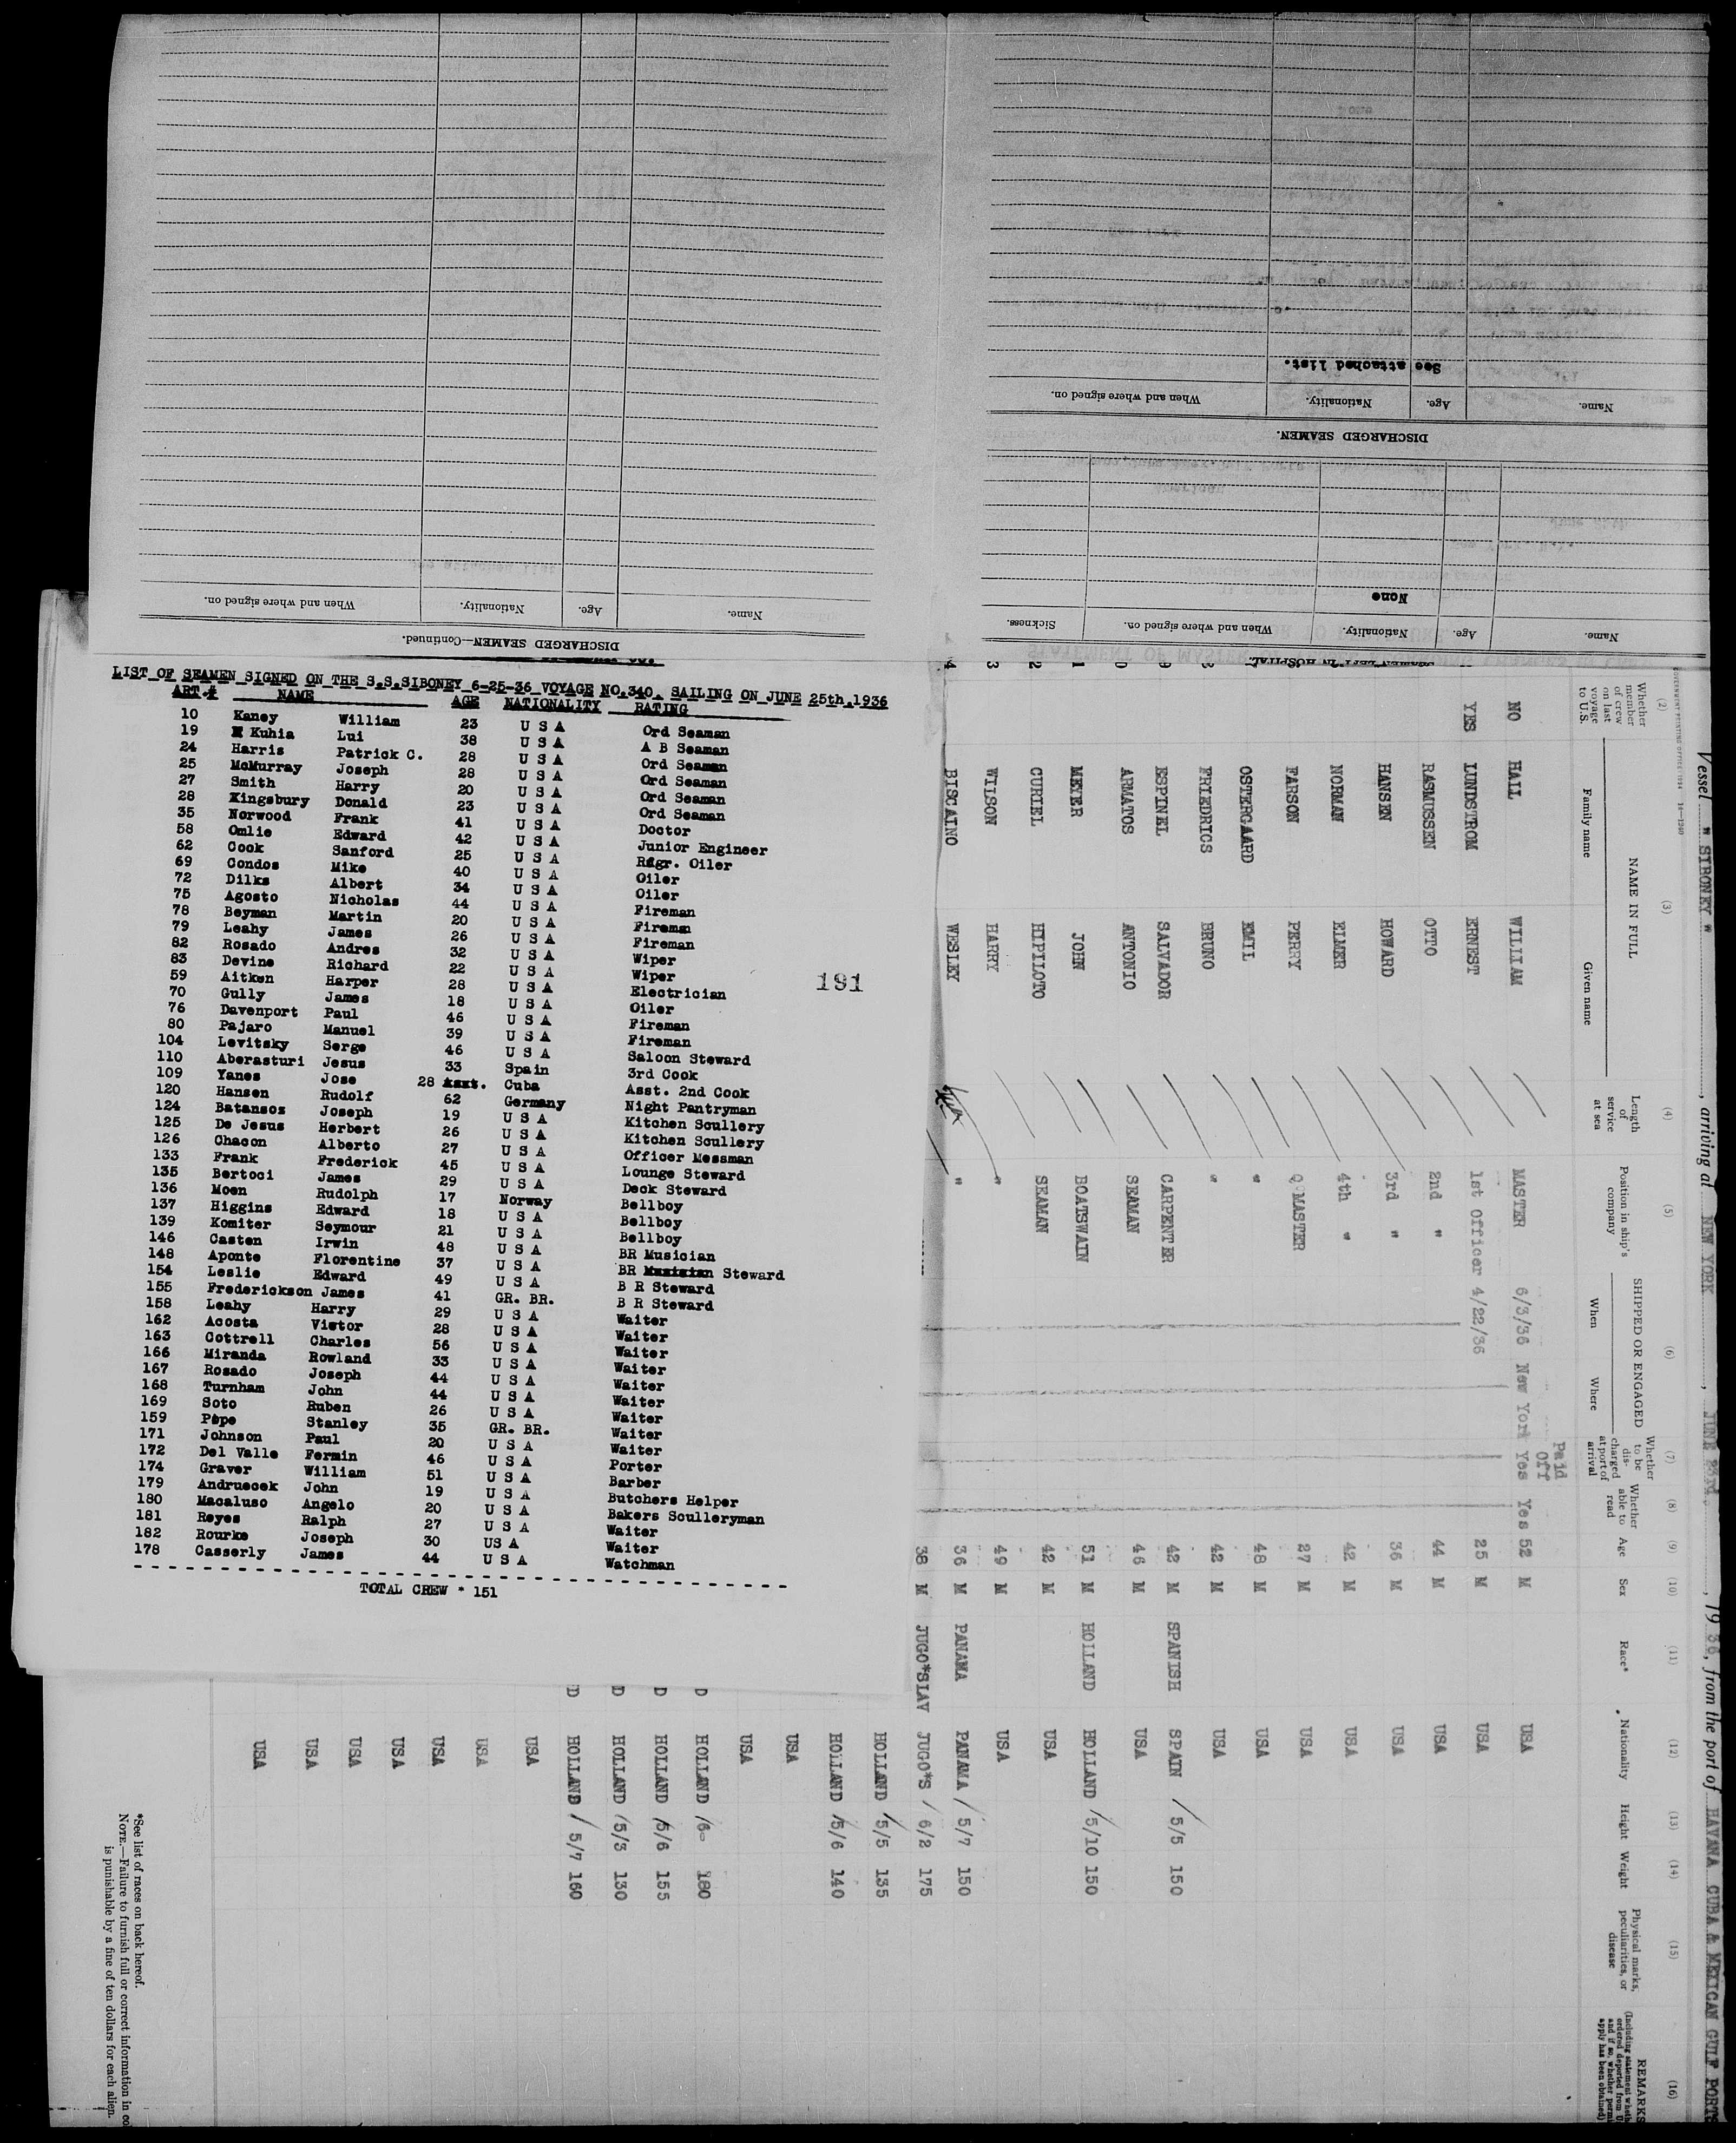 DISCHARGED SEAMEN—Continued.
Name. Age. Nationality. When and where signed on.
SEAMEN LEFT IN HOSPITAL.
Name. Age. Nationality. When and where signed on. Sickness.
None
DISCHARGED SEAMEN.
Name. Age. Nationality. When and where signed on.
See attached list.
LIST OF SEAMEN SIGNED ON THE S.S.SIBONEY 6-25-36 VOYAGE NO.340. SAILING ON JUNE 25th.1936
ART.# NAME AGE NATIONALITY RATING
10 Kaney William 23 U S A Ord Seaman
19 Kuhia Lui 38 U S A A B Seaman
24 Harris Patrick C. 28 U S A Ord Seaman
25 McMurray Joseph 28 U S A Ord Seaman
27 Smith Harry 20 U S A Ord Seaman
28 Kingsbury Donald 23 U S A Ord Seaman
35 Norwood Frank 41 U S A Doctor
58 Omlie Edward 42 U S A Junior Engineer
62 Cook Sanford 25 U S A Rfgr. Oiler
69 Condos Mike 40 U S A Oiler
72 Dilks Albert 34 U S A Oiler
75 Agosto Nicholas 44 U S A Fireman
78 Beyman Martin 20 U S A Fireman
79 Leahy James 26 U S A Fireman
82 Rosado Andres 32 U S A Wiper
83 Devine Richard 22 U S A Wiper
59 Aitken Harper 28 U S A Electrician
70 Gully James 18 U S A Oiler
76 Davenport Paul 46 U S A Fireman
80 Pajaro Manuel 39 U S A Fireman
104 Levitsky Serge 46 U S A Saloon Steward
110 Aberasturi Jesus 33 Spain 3rd Cook
109 Yanes Jose 28 Asst. Cuba Asst. 2nd Cook
120 Hansen Rudolf 62 Germany Night Pantryman
124 Batansos Joseph 19 U S A Kitchen Scullery
125 De Jesus Herbert 26 U S A Kitchen Scullery
126 Chacon Alberto 27 U S A Officer Messman
133 Frank Frederick 45 U S A Lounge Steward
135 Bertoci James 29 U S A Deck Steward
136 Moen Rudolph 17 Norway Bellboy
137 Higgins Edward 18 U S A Bellboy
139 Komiter Seymour 21 U S A Bellboy
146 Casten Irwin 48 U S A BR Musician
148 Aponte Florentine 37 U S A BR Musician Steward
154 Leslie Edward 49 U S A B R Steward
155 Frederickson James 41 GR. BR. B R Steward
158 Leahy Harry 29 U S A Waiter
162 Acosta Victor 28 U S A Waiter
163 Cottrell Charles 56 U S A Waiter
166 Miranda Rowland 33 U S A Waiter
167 Rosado Joseph 44 U S A Waiter
168 Turnham John 44 U S A Waiter
169 Soto Ruben 26 U S A Waiter
159 Pope Stanley 35 GR. BR. Waiter
171 Johnson Paul 20 U S A Waiter
172 Del Valle Fermin 46 U S A Porter
174 Graver William 51 U S A Barber
179 Andruecek John 19 U S A Butchers Helper
180 Macaluso Angelo 20 U S A Bakers Sculleryman
181 Reyes Ralph 27 U S A Waiter
182 Rourke Joseph 30 US A Waiter
178 Casserly James 44 U S A Watchman
TOTAL CREW * 151
191
Vessel " SIBONEY ", arriving at NEW YORK, JUNE 23rd, 1936, from the port of HAVANA CUBA & MEXICAN GULF PORTS
GOVERNMENT PRINTING OFFICE
(2) (3) (4) (5) (6) (7) (8) (9) (10) (11) (12) (13) (14) (15) (16)
Whether member of crew on last voyage to U.S.
NAME IN FULL
Family name Given name
Length of service at sea
Position in ship's company
SHIPPED OR ENGAGED
When Where
Whether to be discharged at port of arrival
Whether able to read
Age Sex Race* Nationality Height Weight
Physical marks, peculiarities, or disease
REMARKS
Paid Off
NO HALL WILLIAM MASTER 6/3/36 New York Yes Yes 52 M USA
YES LUNDSTROM ERNEST 1st Officer 4/22/36 25 M USA
RASMUSSEN OTTO 2nd " 44 M USA
HANSEN HOWARD 3rd " 36 M USA
NORMAN ELMER 4th " 42 M USA
FARSON PERRY Q MASTER 27 M USA
OSTERGAARD EMIL " 48 M USA
FRIEDRICS BRUNO " 42 M USA
ESPINEL SALVADOR CARPENTER 42 M SPANISH SPAIN / 5/5 150
ARMATOS ANTONIO SEAMAN 46 M USA
1 MEYER JOHN BOATSWAIN 51 M HOLLAND HOLLAND / 5/10 150
2 CURIEL HIPILOTO SEAMAN 42 M USA
3 WILSON HARRY " 49 M USA
4 BISCAINO WESLEY " 36 M PANAMA PANAMA / 5/7 150
38 M JUGO*SLAV JUGO*S / 6/2 175
HOLLAND / 5/5 135
HOLLAND / 5/6 140
USA
USA
D HOLLAND / 6- 180
D HOLLAND / 5/6 155
D HOLLAND / 5/3 130
D HOLLAND / 5/7 160
USA
USA
USA
USA
USA
USA
USA
*See list of races on back hereof.
NOTE.—Failure to furnish full or correct information in co
is punishable by a fine of ten dollars for each alien.